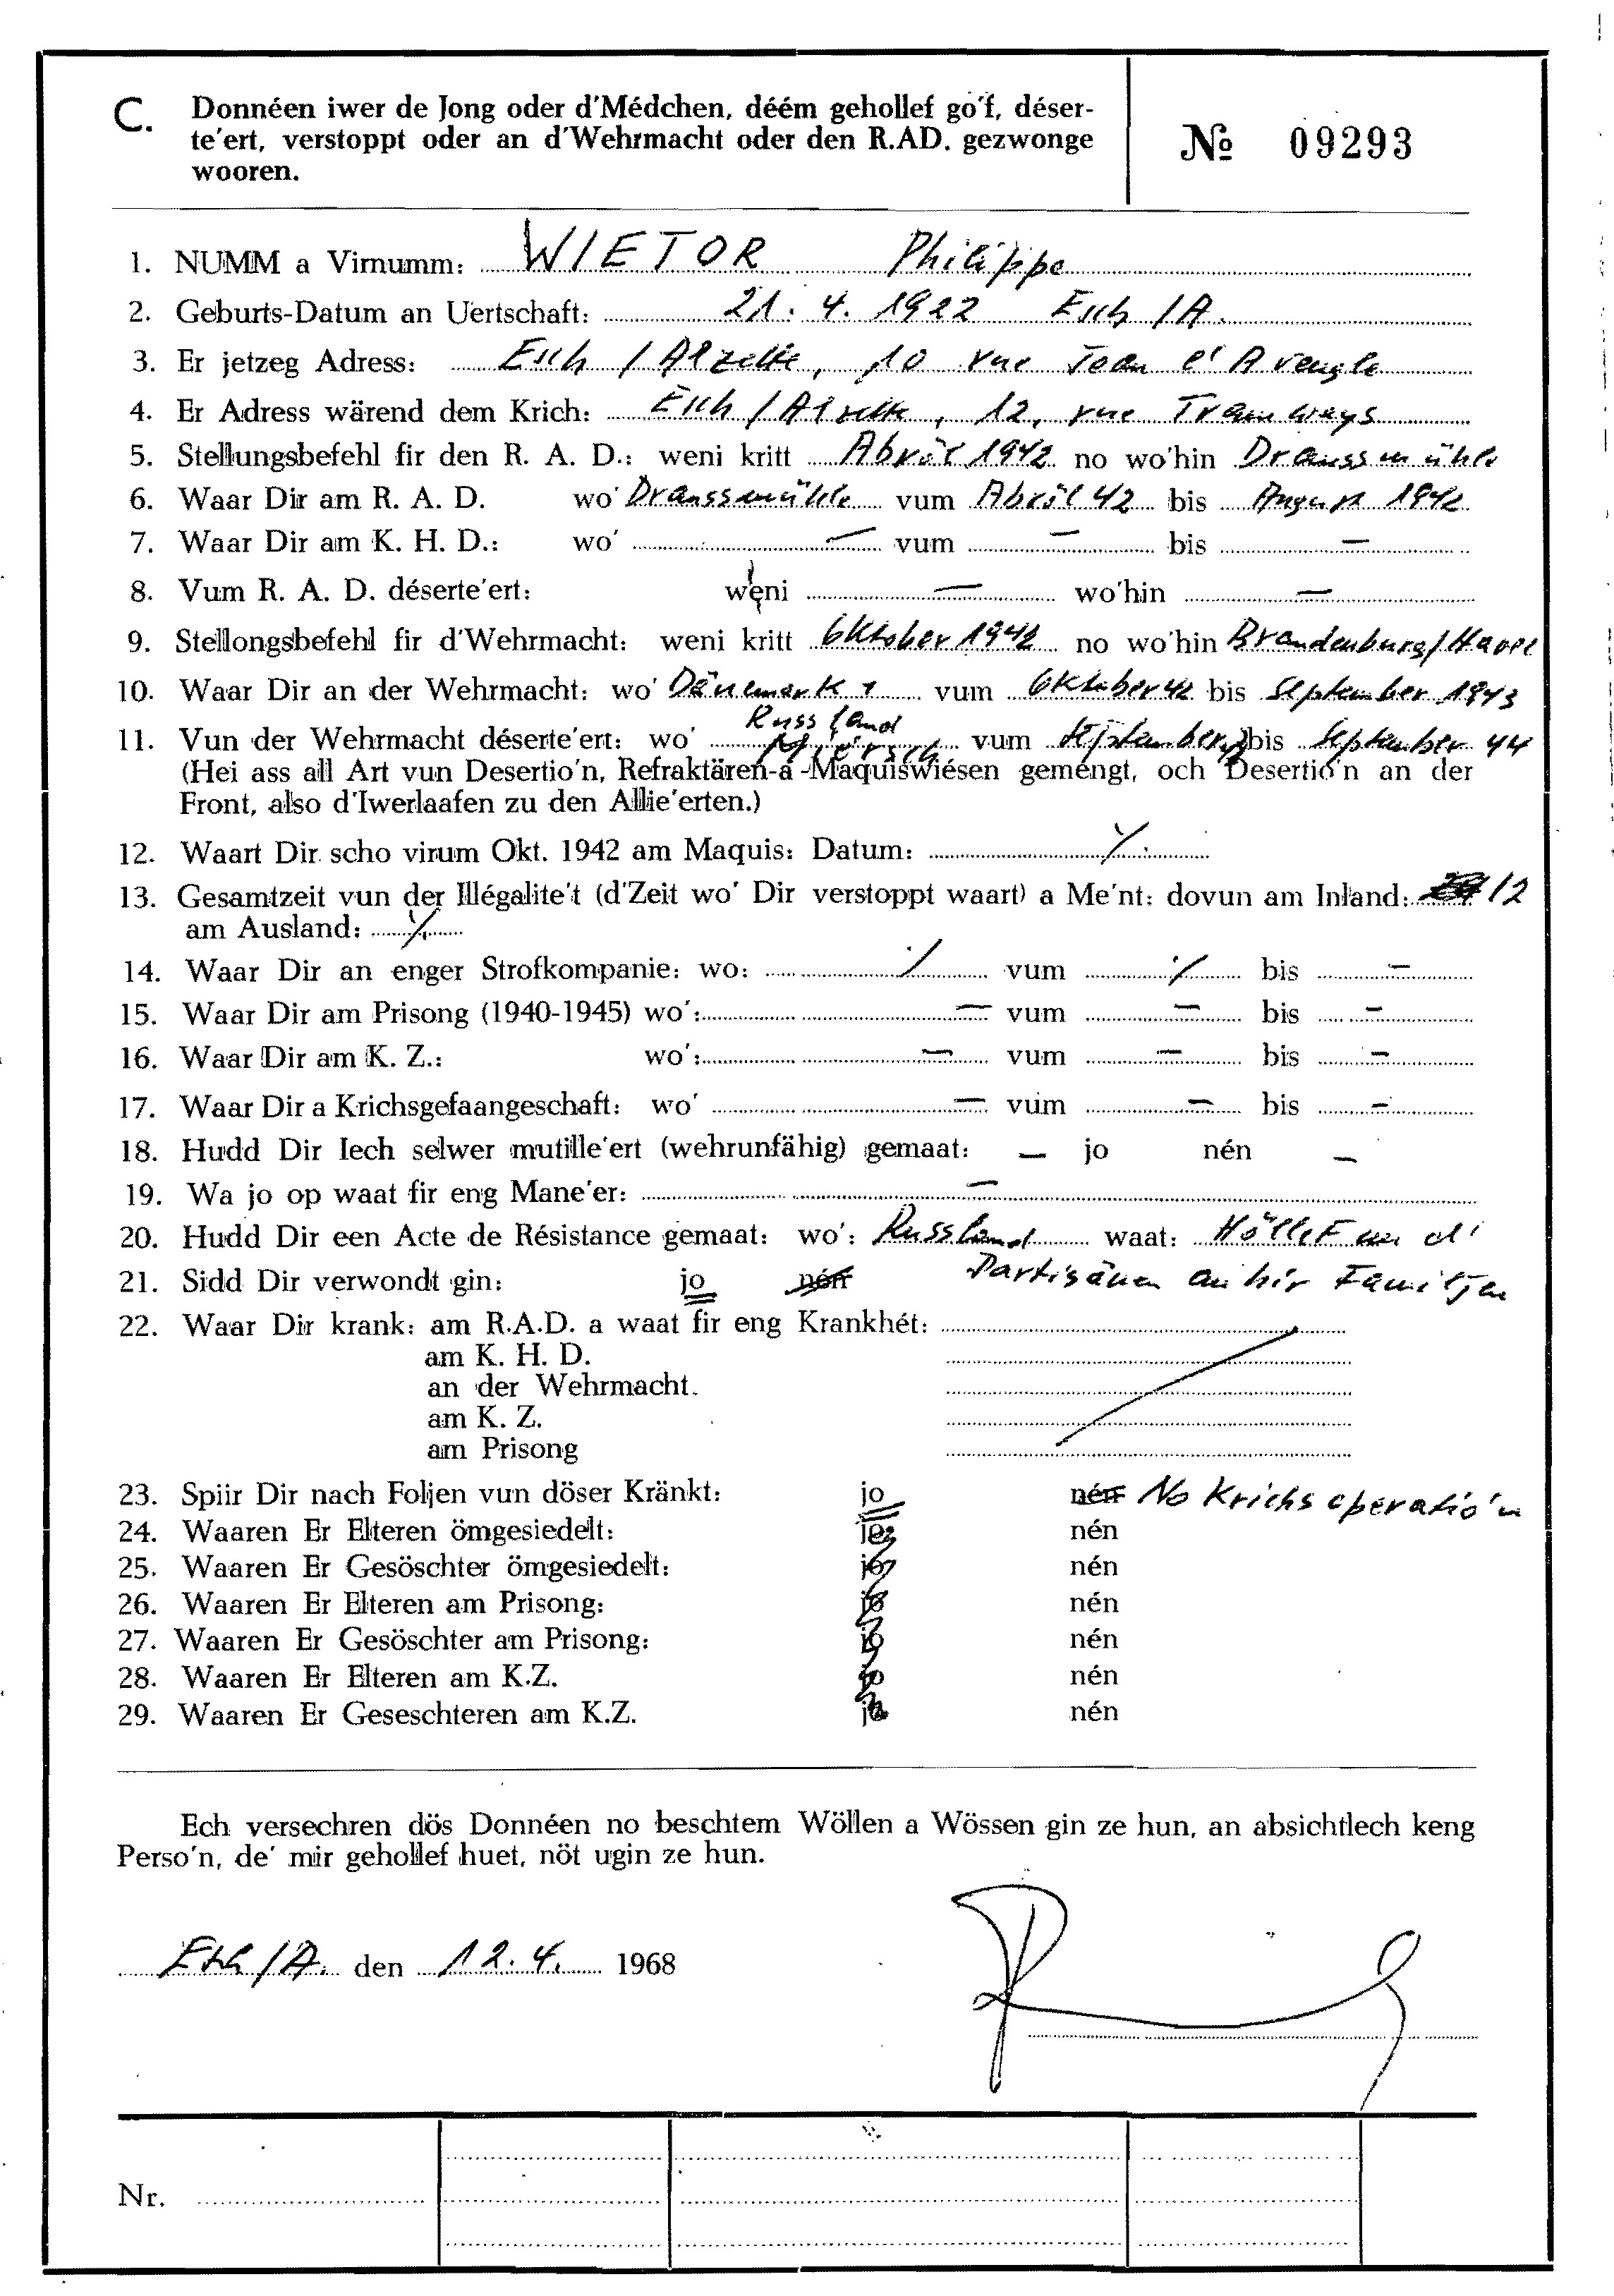 C. Donnéen iwer de Jong oder d'Médchen, déém gehollef go'f, déser-
te'ert, verstoppt oder an d'Wehrmacht oder den R.AD. gezwonge
wooren.
№ 09293
1. NUMM a Virnumm: WIETOR Philippe
2. Geburts-Datum an Uertschaft: 21. 4. 1922 Esch /A.
3. Er jetzeg Adress: Esch / Alzette, 10 rue Jean l'Aveugle
4. Er Adress wärend dem Krich: Esch / Alzette, 12, rue Tramways
5. Stellungsbefehl fir den R. A. D.: weni kritt Abröl 1942 no wo'hin Draussmühle
6. Waar Dir am R. A. D. wo' Draussmühle vum Abröl 42 bis August 1942
7. Waar Dir am K. H. D.: wo' — vum — bis —
8. Vum R. A. D. déserte'ert: weni — wo'hin —
9. Stellongsbefehl fir d'Wehrmacht: weni kritt Oktober 1942 no wo'hin Brandenburg/Havel
10. Waar Dir an der Wehrmacht: wo' Dänemark, vum Oktober 42 bis September 1943
Russland
11. Vun der Wehrmacht déserte'ert: wo' Miersch vum September bis September 44
(Hei ass all Art vun Desertio'n, Refraktären-a -Maquiswiésen gemengt, och Desertio'n an der
Front, also d'Iwerlaafen zu den Allie'erten.)
12. Waart Dir scho virum Okt. 1942 am Maquis: Datum: ⁒
13. Gesamtzeit vun der Illégalite't (d'Zeit wo' Dir verstoppt waart) a Me'nt: dovun am Inland: 12
am Ausland: ⁒
14. Waar Dir an enger Strofkompanie: wo: ⁒ vum ⁒ bis —
15. Waar Dir am Prisong (1940-1945) wo': — vum — bis —
16. Waar Dir am K. Z.: wo': — vum — bis —
17. Waar Dir a Krichsgefaangeschaft: wo' — vum — bis —
18. Hudd Dir Iech selwer mutille'ert (wehrunfähig) gemaat: — jo nén —
19. Wa jo op waat fir eng Mane'er: —
20. Hudd Dir een Acte de Résistance gemaat: wo': Russland waat: Höllef un d'
21. Sidd Dir verwondt gin: jo nén Partisänen an hir Familjen
22. Waar Dir krank: am R.A.D. a waat fir eng Krankhét:
am K. H. D.
an der Wehrmacht.
am K. Z.
am Prisong
23. Spiir Dir nach Foljen vun döser Kränkt: jo nén No Krichsoperatio'n
24. Waaren Er Elteren ömgesiedelt: jo nén
25. Waaren Er Gesöschter ömgesiedelt: jo nén
26. Waaren Er Elteren am Prisong: jo nén
27. Waaren Er Gesöschter am Prisong: jo nén
28. Waaren Er Elteren am K.Z. jo nén
29. Waaren Er Geseschteren am K.Z. jo nén
Ech versechren dös Donnéen no beschtem Wöllen a Wössen gin ze hun, an absichtlech keng
Perso'n, de' mir gehollef huet, nöt ugin ze hun.
Esch /A. den 12. 4. 1968
Nr.